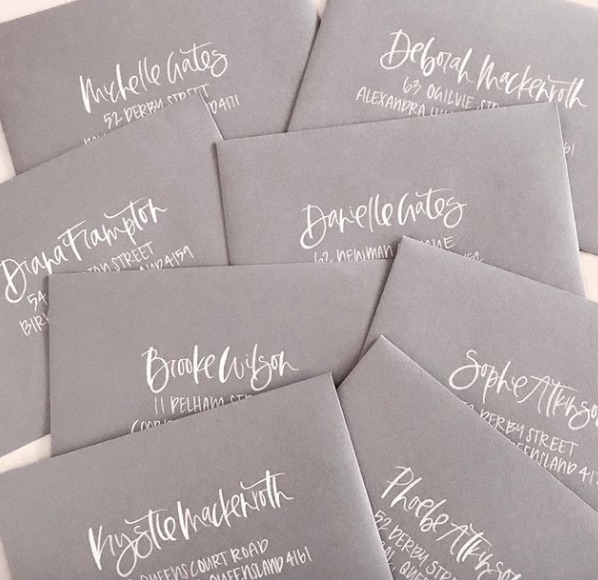 Michelle Gates
52 DERBY STREET
D4171
Deborah Mackenroth
63 OGILVIE
ALEXANDRA
Diana Frampton
STREET
4159
Danielle Gates
62 NEWMAN
Brooke Wilson
11 PELHAM
Sophie Atkinso
DERBY STREET
ENSLAND
Krystle Mackenroth
QUEENS COURT ROAD
QUEENSLAND 4161
Phoebe Atkinson
52 DERBY